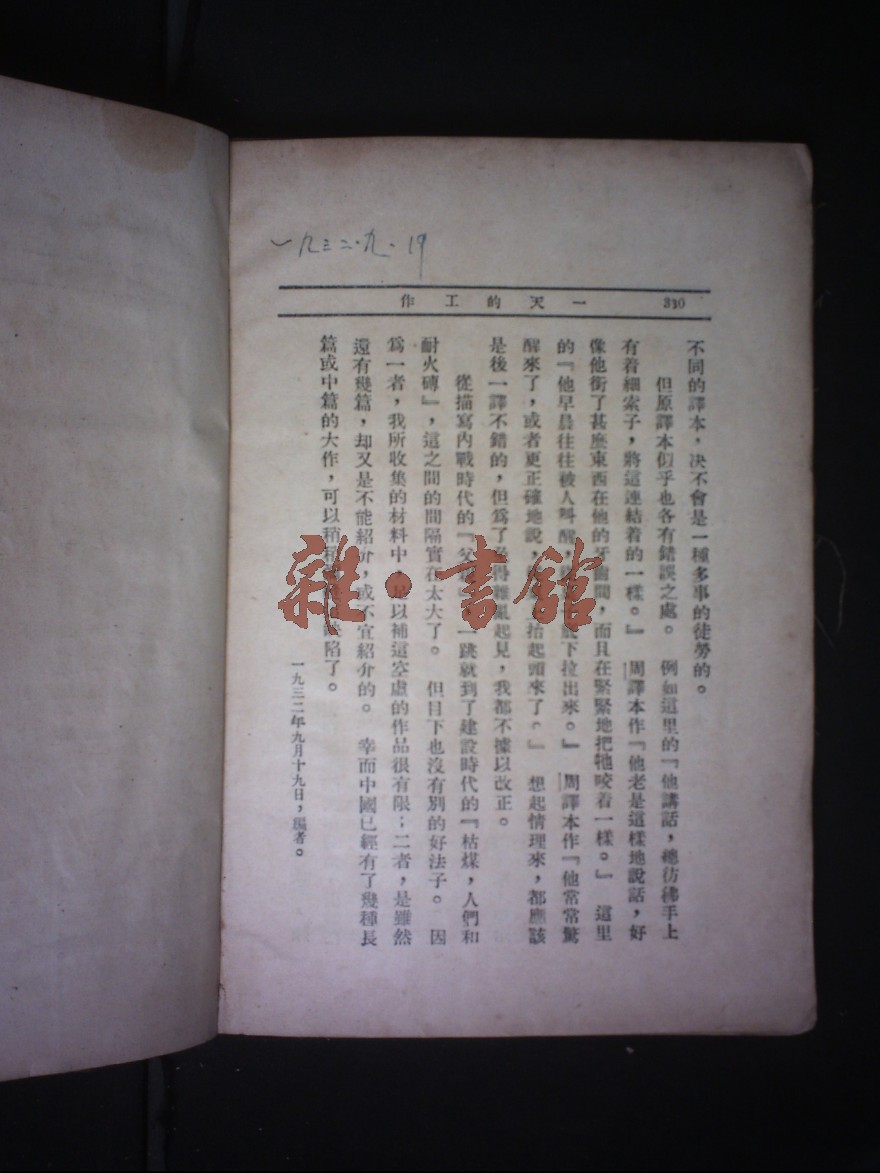 一九三二·九·19
一天的工作 330
不同的譯本，决不會是一種多事的徒勞的。
但原譯本似乎也各有錯誤之處。例如這里的『他講話，總彷彿手上
有着細索子，將這連結着的一樣。』周譯本作『他老是這樣地說話，好
像他銜了甚麽東西在他的牙齒間，而且在緊緊地把牠咬着一樣。』這里
的『他早晨往往被人叫醒，底下拉出來。』周譯本作『他常常驚
醒來了，或者更正確地說，抬起頭來了。』想起情理來，都應該
是後一譯不錯的，但爲了免得雜亂起見，我都不據以改正。
從描寫內戰時代的『父親』，一跳就到了建設時代的『枯煤，人們和
耐火磚』，這之間的間隔實在太大了。但目下也沒有別的好法子。因
爲一者，我所收集的材料中，足以補這空虛的作品很有限；二者，是雖然
還有幾篇，却又是不能紹介，或不宜紹介的。幸而中國已經有了幾種長
篇或中篇的大作，可以稍稍缺陷了。
一九三二年九月十九日，編者。
雜·書館